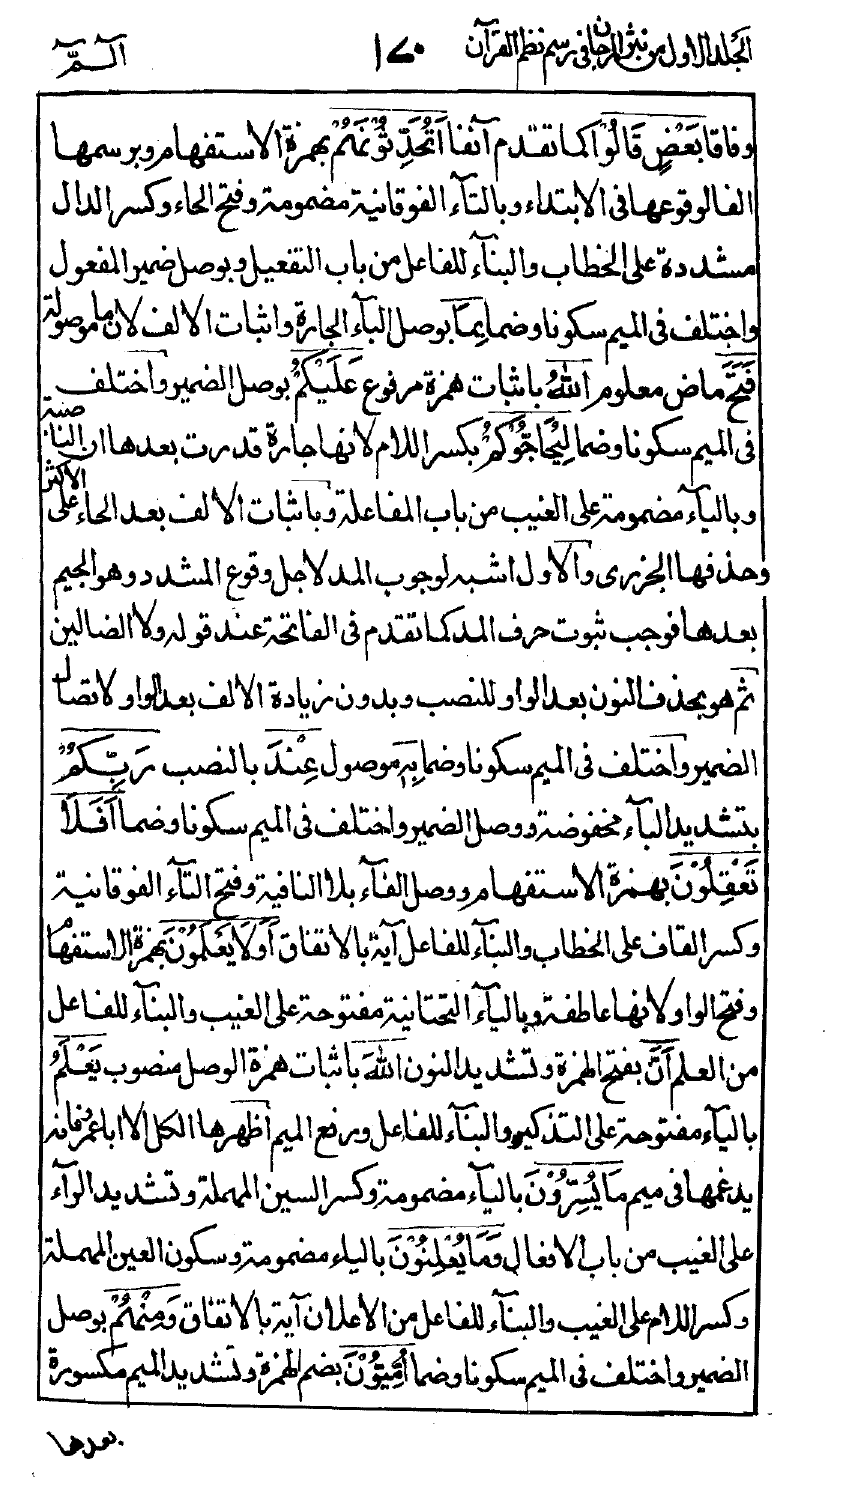 الجلد الاول من نثر المرجان فی رسم نظم القرآن ١٧٠ الٓــمّٓ
وفاقا بَعْضٍ قَالُوْٓا كما تقدم آنفا اَتُحَدِّثُوْنَهُمْ بهمزة الاستفهام وبرسمها
الفا لوقوعها فى الابتداء وبالتآء الفوقانية مضمومة وفتح الحاء وكسر الدال
مشددة على الخطاب والبنآء للفاعل من باب التفعيل وبوصل ضمير المفعول
واختلف فى الميم سكونا وضما بِمَا بوصل البآء الجارة واثبات الالف لان ما موصولة
فَتَحَ ماض معلوم اللهُ باثبات همزة مرفوع عَلَيْكُمْ بوصل الضمير واختلف
فى الميم سكونا وضما لِيُحَآجُّوْكُمْ بكسر اللام لانها جارة قدرت بعدها ان الناصبة
وبالياء مضمومة على الغيب من باب المفاعلة وباثبات الالف بعد الحاء على الاكثر
وحذفها الجزرى والاول اشبه لوجوب المد لاجل وقوع المشدد وهو الجيم
بعدها فوجب ثبوت حرف المد كما تقدم فى الفاتحة عند قوله ولا الضالين
ثم هو بحذف النون بعد الواو للنصب وبدون زيادة الالف بعد الواو لاتصال
الضمير واختلف فى الميم سكونا وضما بِهٖ موصول عِنْدَ بالنصب رَبِّكُمْ
بتشديد البآء مخفوضة ووصل الضمير واختلف فى الميم سكونا وضما اَفَلَا
تَعْقِلُوْنَ بهمزة الاستفهام ووصل الفآء بلا النافية وفتح التآء الفوقانية
وكسر القاف على الخطاب والبنآء للفاعل آية بالاتفاق اَوَلَا يَعْلَمُوْنَ بهمزة الاستفهام
وفتح الواو لانها عاطفة وبالياء التحتانية مفتوحة على الغيب والبنآء للفاعل
من العلم اَنَّ بفتح الهمزة وتشديد النون اللهَ باثبات همزة الوصل منصوب يَعْلَمُ
بالياء مفتوحة على التذكير والبنآء للفاعل ورفع الميم اظهرها الكل الا ابا عمرو فانه
يدغمها فى ميم مَا يُسِرُّوْنَ بالياء مضمومة وكسر السين المهملة وتشديد الرآء
على الغيب من باب الافعال وَمَا يُعْلِنُوْنَ بالياء مضمومة وسكون العين المهملة
وكسر اللام على الغيب والبنآء للفاعل من الاعلان آية بالاتفاق وَمِنْهُمْ بوصل
الضمير واختلف فى الميم سكونا وضما اُمِّيُّوْنَ بضم الهمزة وتشديد الميم مكسورة
بعدها